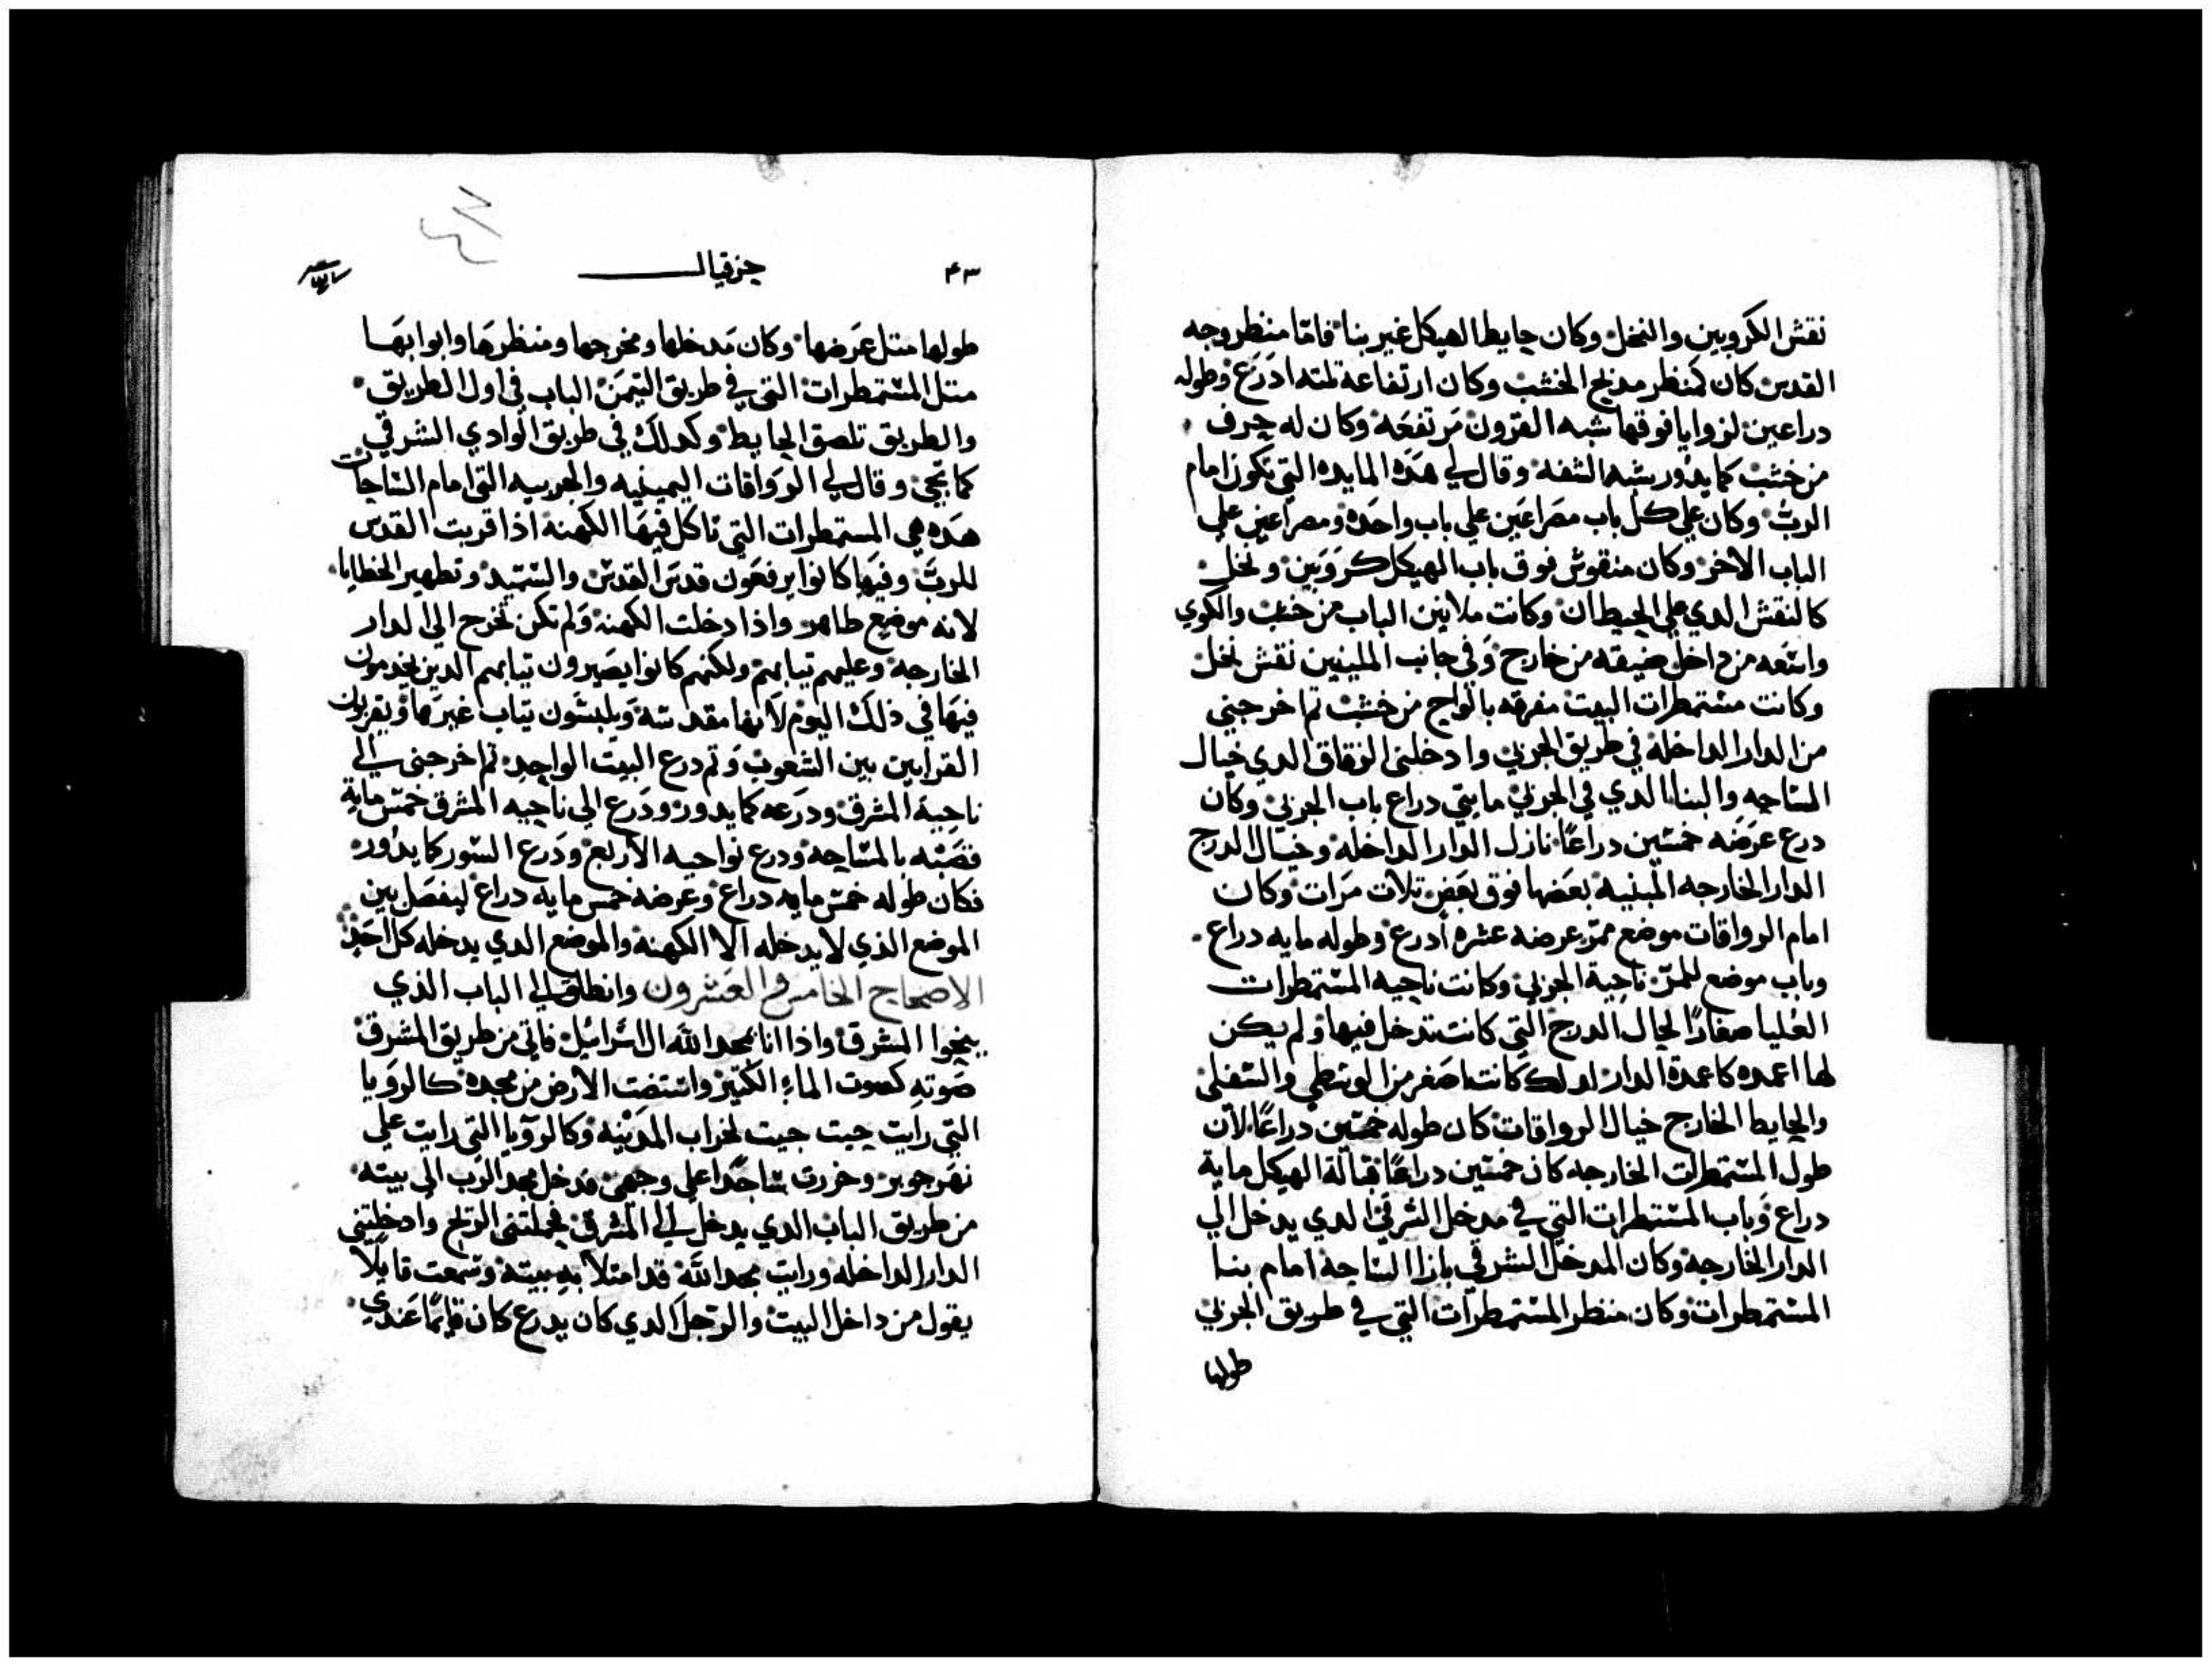 نقش الكروبين والنخل وكان حايط الهيكل غير بنا فاما منظر وجه
القدس كان كمنظر مدبح الخشب وكان ارتفاعه تلته ادرع وطوله
دراعين لزوايا فوقها شبه القرون مرتفعه وكان له حرف
من خشب كما يدور شبه الشفه وقال لي هده المايده التي تكون امام
الرب وكان علي كل باب مصراعين علي باب واحده ومصراعين علي
الباب الاخر وكان منقوش فوق باب الهيكل كروبين ونخل
كالنقش الدي علي الحيطان وكانت ملابين الباب من خشب والكوي
واسعه من داخل ضيقه من خارج وفي جانب الملبنين نقش نخل
وكانت مستمطرات البيت مفرقه بالواح من خشب تم اخرجني
من الدار الداخله في طريق الجربي وادخلني الزقاق الدي خيال
الساحه والبنا الدي في الجربي مايتي دراع باب الجربي وكان
درع عرضه خمسين دراعا نازل الدار الداخله وخيال الدرج
الدار الخارجه المبنيه بعضها فوق بعض تلات مرات وكان
امام الرواقات موضع ممر عرضه عشره أدرع وطوله مايه دراع
وباب موضع للممر ناحية الجربي وكانت ناحيه المستمطرات
العليا صغارا لحال الدرج التي كانت تدخل فيها ولم يكن
لها اعمده كاعمدة الدار لدلك كانت اصغر من الوسطي والسفلي
والحايط الخارج خيال الرواقات كان طوله خمسين دراعا لان
طول المستمطرات الخارجه كان خمسين دراعا قبالة الهيكل ماية
دراع وباب المستمطرات التي في مدخل الشرقي الدي يدخل الي
الدار الخارجه وكان المدخل الشرقي بازا الساحه امام بنا
المستمطرات وكان منظر المستمطرات التي في طريق الجربي
طولها
٤٣ حزقيال
طولها متل عرضها وكان مدخلها ومخرجها ومنظرها وابوابها
متل المستمطرات التي في طريق التيمن الباب في اول الطريق
والطريق تلصق الحايط وكدلك في طريق الوادي الشرقي
كما تجي وقال لي الرواقات اليمينيه والجربيه التي امام الساحات
هده هي المستمطرات التي تاكل فيها الكهنه ادا قربت القدس
للرب وفيها كانوا يرفعون قدس القدس والسميد وتطهير الخطايا
لانه موضع طاهر واذا دخلت الكهنه ولم تكن تخرج الي الدار
الخارجه وعليهم تيابهم ولكنهم كانوا يصيرون تيابهم الدين يخدمون
فيها في ذلك اليوم لانها مقدسه ويلبسون تياب غيرها ويقربون
القرابين بين الشعوب وتم درع البيت الواحد تم اخرجني الي
ناحية المشرق ودرعه كما يدور ودرع الي ناحيه المشرق خمس ماية
قصبه بالمساحه ودرع نواحيه الاربع ودرع السور كما يدور
فكان طوله خمس مايه دراع وعرضه خمس مايه دراع ليفصل بين
الموضع الذي لا يدخله الا الكهنه والموضع الدي يدخله كل احد
الاصحاح الخامس والعشرون وانطلق لي الباب الذي
ينحوا الشرق واذا انا بمجد الله ال اسرائيل فاتي من طريق المشرق
صوته كصوت الماء الكتير واستضت الارض من مجده كالرويا
التي رايت حيت جيت لخراب المدينه وكالرويا التي رايت علي
نهر حوبر وخررت ساجدا علي وجهي فدخل مجد الرب الي بيته
من طريق الباب الدي يدخل الي المشرق فحملتني الريح وادخلتني
الدار الداخله ورايت مجد الله قد امتلا به بيته وسمعت قايلا
يقول من داخل البيت والرجل الدي كان يدرع كان قايما عندي